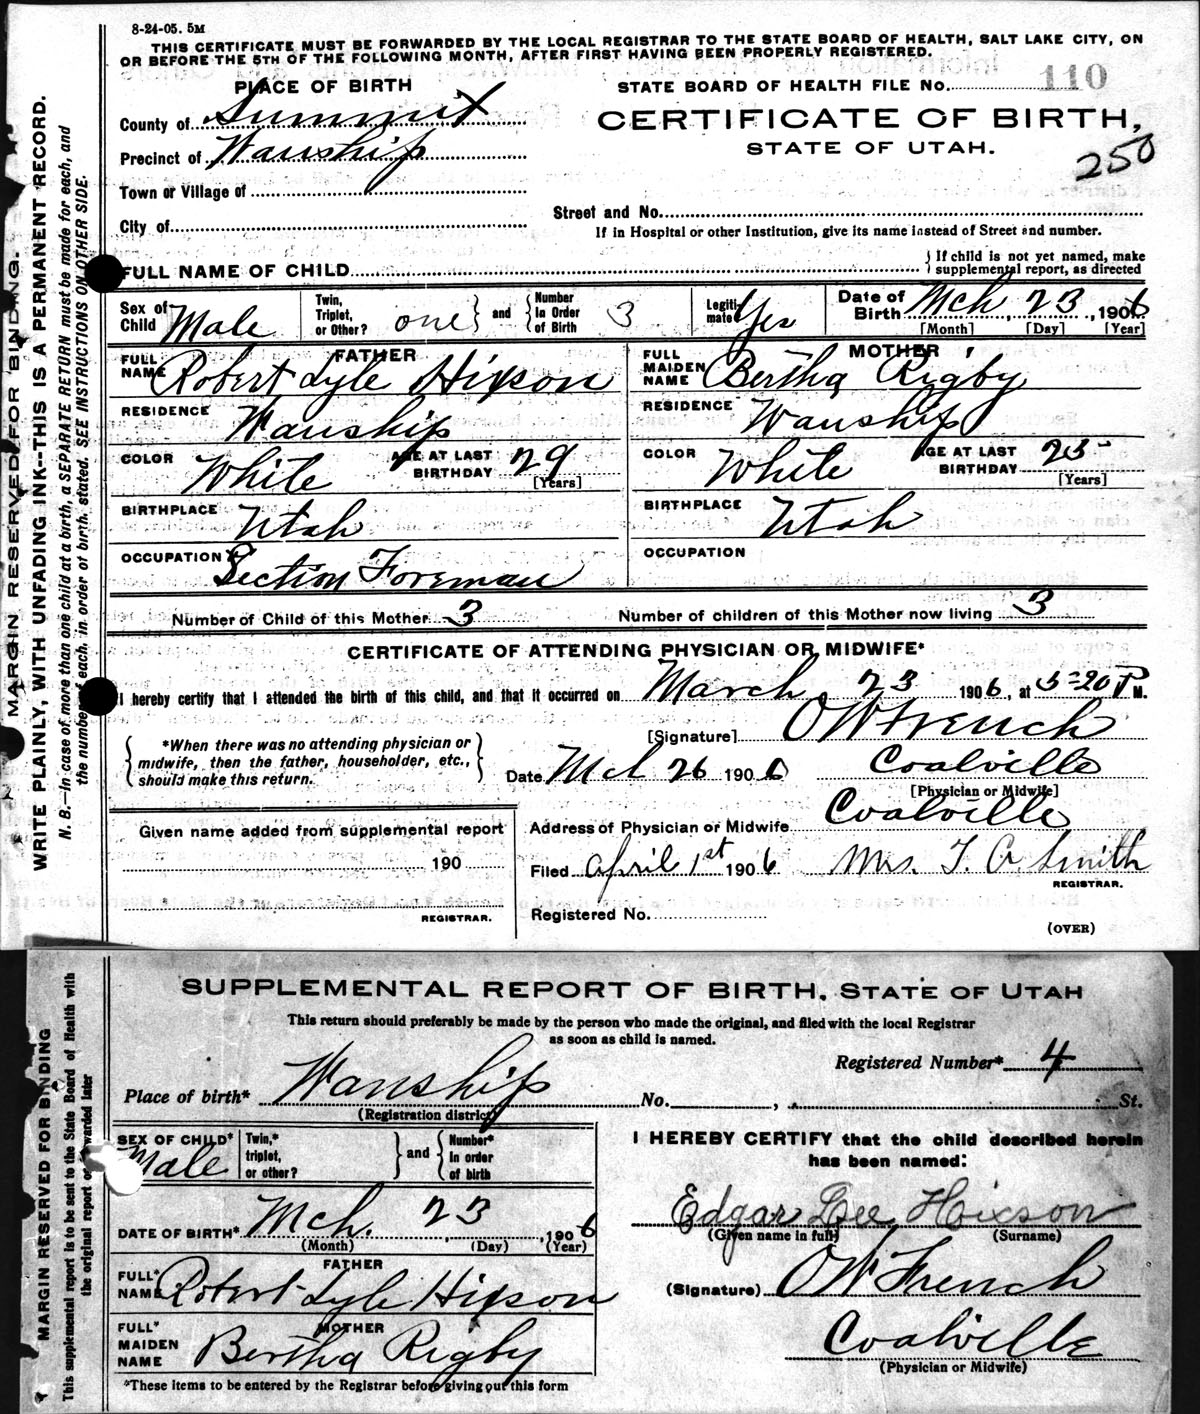 8-24-05. 5M
THIS CERTIFICATE MUST BE FORWARDED BY THE LOCAL REGISTRAR TO THE STATE BOARD OF HEALTH, SALT LAKE CITY, ON
OR BEFORE THE 5TH OF THE FOLLOWING MONTH, AFTER FIRST HAVING BEEN PROPERLY REGISTERED.
PLACE OF BIRTH
STATE BOARD OF HEALTH FILE No. 110
County of Summit
CERTIFICATE OF BIRTH,
Precinct of Wanship
STATE OF UTAH.
250
Town or Village of
Street and No.
City of
If in Hospital or other Institution, give its name instead of Street and number.
FULL NAME OF CHILD
} If child is not yet named, make
supplemental report, as directed
Sex of Child Male
Twin, Triplet, or Other? one } and { Number In Order of Birth 3
Legitimate? Yes
Date of Birth Mch 23, 1906
[Month] [Day] [Year]
FATHER
FULL NAME Robert Lyle Hixson
MOTHER
FULL MAIDEN NAME Bertha Rigby
RESIDENCE Wanship
RESIDENCE Wanship
COLOR White AGE AT LAST BIRTHDAY 29 [Years]
COLOR White AGE AT LAST BIRTHDAY 25 [Years]
BIRTHPLACE Utah
BIRTHPLACE Utah
OCCUPATION Section Foreman
OCCUPATION
Number of Child of this Mother 3 Number of children of this Mother now living 3
CERTIFICATE OF ATTENDING PHYSICIAN OR MIDWIFE*
I hereby certify that I attended the birth of this child, and that it occurred on March 23 1906, at 5-20 P M.
[Signature] O W French
*When there was no attending physician or
midwife, then the father, householder, etc.,
should make this return.
Date Mch 26 1906 Coalville
[Physician or Midwife]
Given name added from supplemental report
190
REGISTRAR.
Address of Physician or Midwife Coalville
Filed April 1st 1906 Mrs. T. A. Smith
REGISTRAR.
Registered No.
(OVER)
MARGIN RESERVED FOR BINDING.
WRITE PLAINLY, WITH UNFADING INK--THIS IS A PERMANENT RECORD.
N. B.—In case of more than one child at a birth, a SEPARATE RETURN must be made for each, and
the number of each, in order of birth, stated. SEE INSTRUCTIONS ON OTHER SIDE.
SUPPLEMENTAL REPORT OF BIRTH, STATE OF UTAH
This return should preferably be made by the person who made the original, and filed with the local Registrar
as soon as child is named.
Registered Number* 4
Place of birth* Wanship No. , St.
(Registration district)
SEX OF CHILD* Male
Twin,* triplet, or other? } and { Number* In order of birth
DATE OF BIRTH* Mch. 23, 1906
(Month) (Day) (Year)
FATHER
FULL* NAME Robert Lyle Hixson
MOTHER
FULL* MAIDEN NAME Bertha Rigby
*These items to be entered by the Registrar before giving out this form
I HEREBY CERTIFY that the child described herein
has been named:
Edgar Lee Hixson
(Given name in full) (Surname)
(Signature) O W French
Coalville
(Physician or Midwife)
MARGIN RESERVED FOR BINDING
This supplemental report is to be sent to the State Board of Health with
the original report or forwarded later